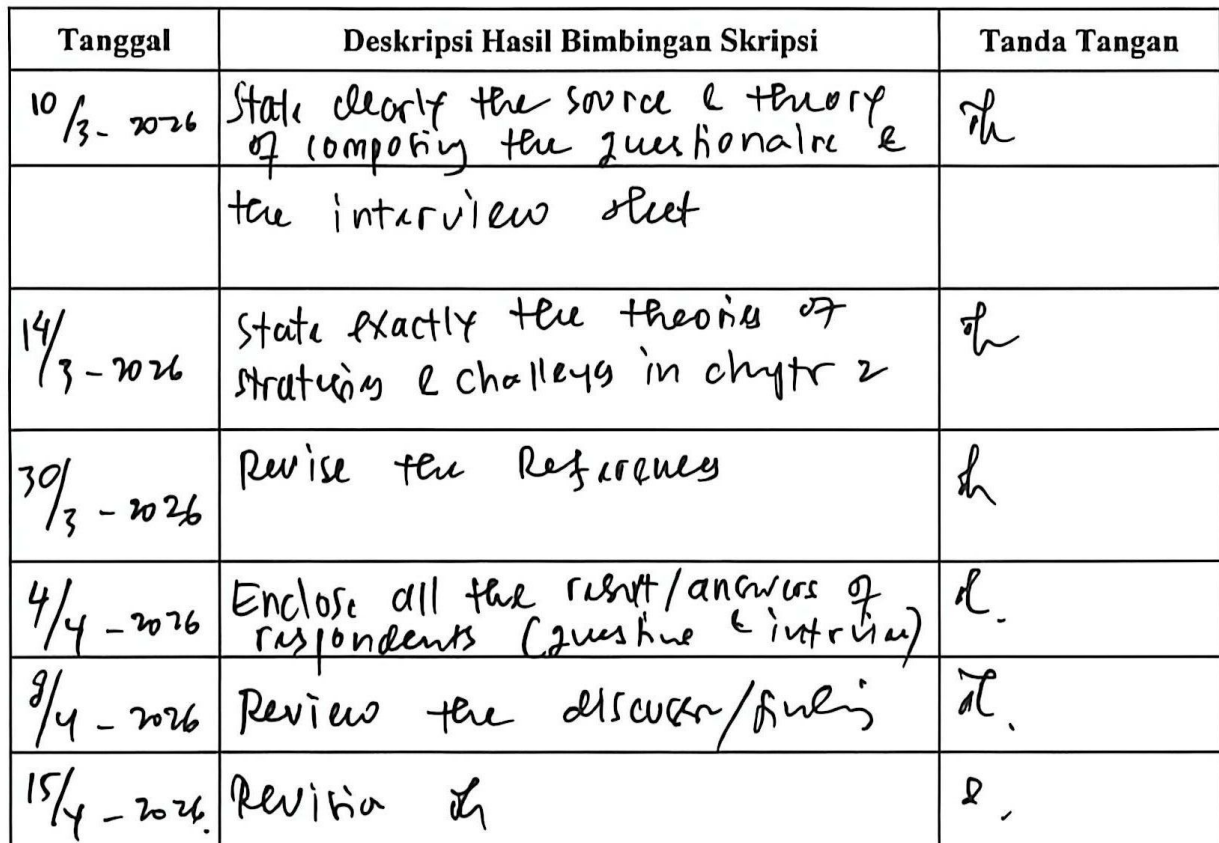 Tanggal Deskripsi Hasil Bimbingan Skripsi Tanda Tangan
10/3 - 2026 State clearly the source & theory
of composing the questionaire &
the interview sheet
14/3 - 2026 State exactly the theories of
strategies & challenges in chapter 2
30/3 - 2026 Revise the References
4/4 - 2026 Enclose all the result/answers of
respondents (questine & intrview)
/4 - 2026 Review the discussn/finding
15/4 - 2026. Revision